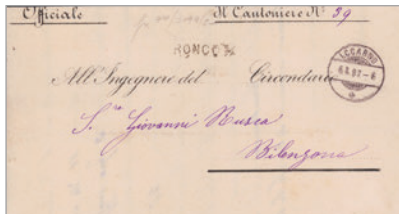 Officiale Il Cantoniere N.º 39
RONCO S/A
LOCARNO
All'Ingegnere del Circondario
S.re Giovanni Rusca
Bilenzona